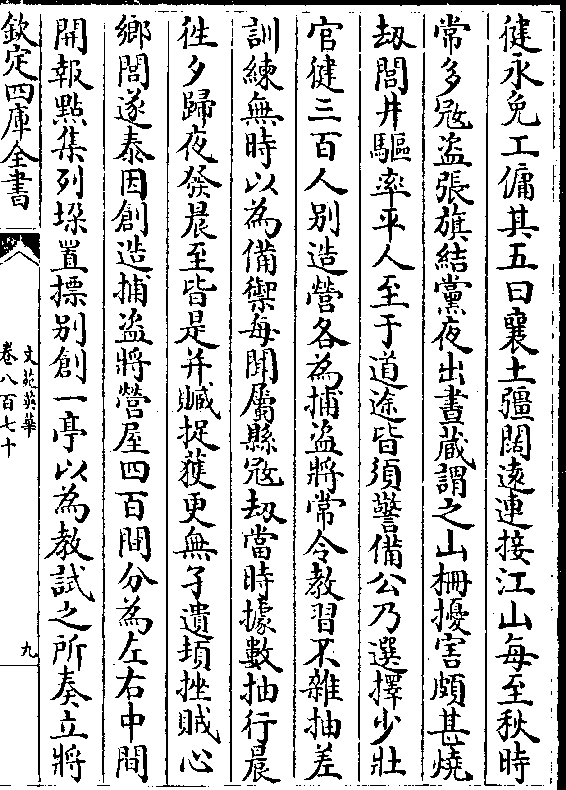 健永免工傭其五曰襄土彊闊遠連接江山每至秋時
常多冦盗張旗結黨夜出晝蔵謂之山柵擾害頗甚燒
刼閭井驅率平人至于道途皆須警備公乃選擇少壯
官健三百人别造營各為捕盗將常令教習不雜抽差
訓練無時以為備禦每聞屬縣冦刼當時據數抽行晨
徃夕歸夜發晨至皆是并贓捉獲更無孑遺頃挫賊心
鄉閭遂泰因創造捕盗將營屋四百間分為左右中間
開報點集列垜置摽别創一亭以為教試之所奏立將
欽定四庫全書
文苑英華
卷八百七十
九